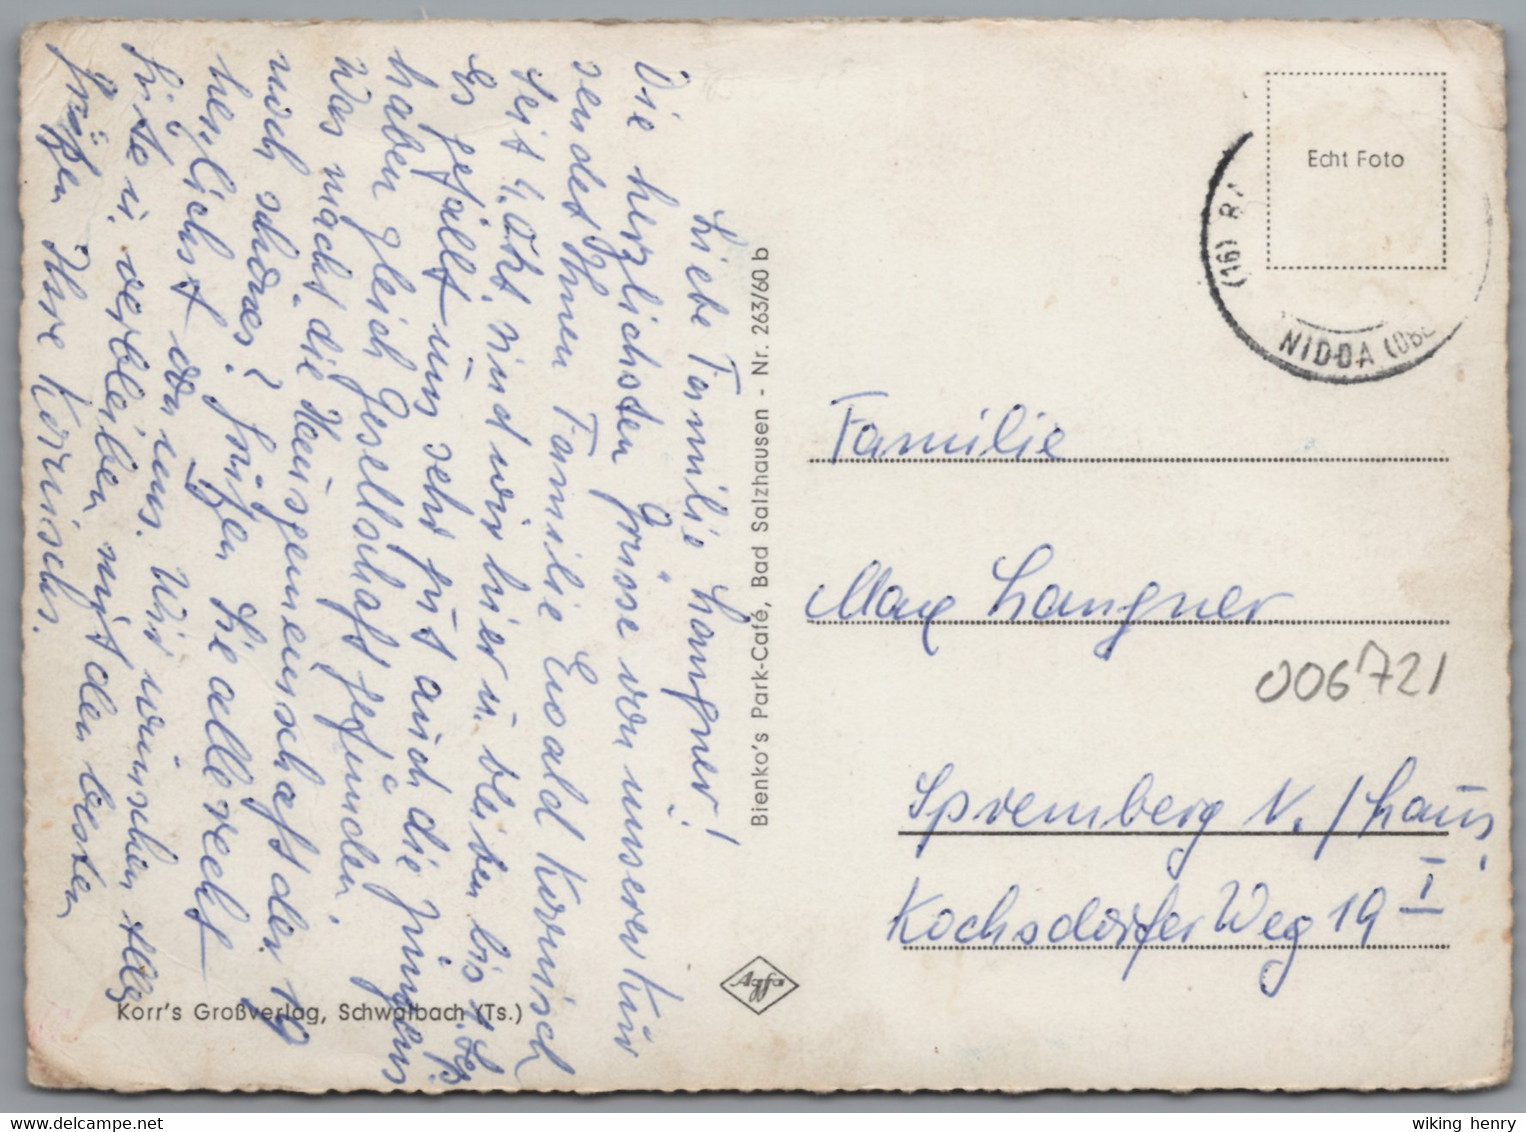 Liebe Familie Langner!
Die herzlichsten Grüsse von unserer Kur
sendet Ihnen Familie Ewald Kornisch
Seit 4. Okt. sind wir hier u. bleiben bis 1.
Es gefällt uns sehr gut auch die Jungens
haben gleich Gesellschaft gefunden.
Was macht die Hausgemeinschaft der 19
noch schönes? Grüßen Sie alle recht
herzlichst von uns. Wir wünschen alles
Gute u. verbleiben mit den besten
Grüßen Ihre Kornischs.
Korr's Großverlag, Schwalbach (Ts.)
Bienko's Park-Café, Bad Salzhausen - Nr. 263/60 b
Agfa
Echt Foto
(16) BA
NIDDA (OBE
Familie
Max Langner
006721
Spremberg N./Laus.
Kochsdorfer Weg 19 I
wiking henry